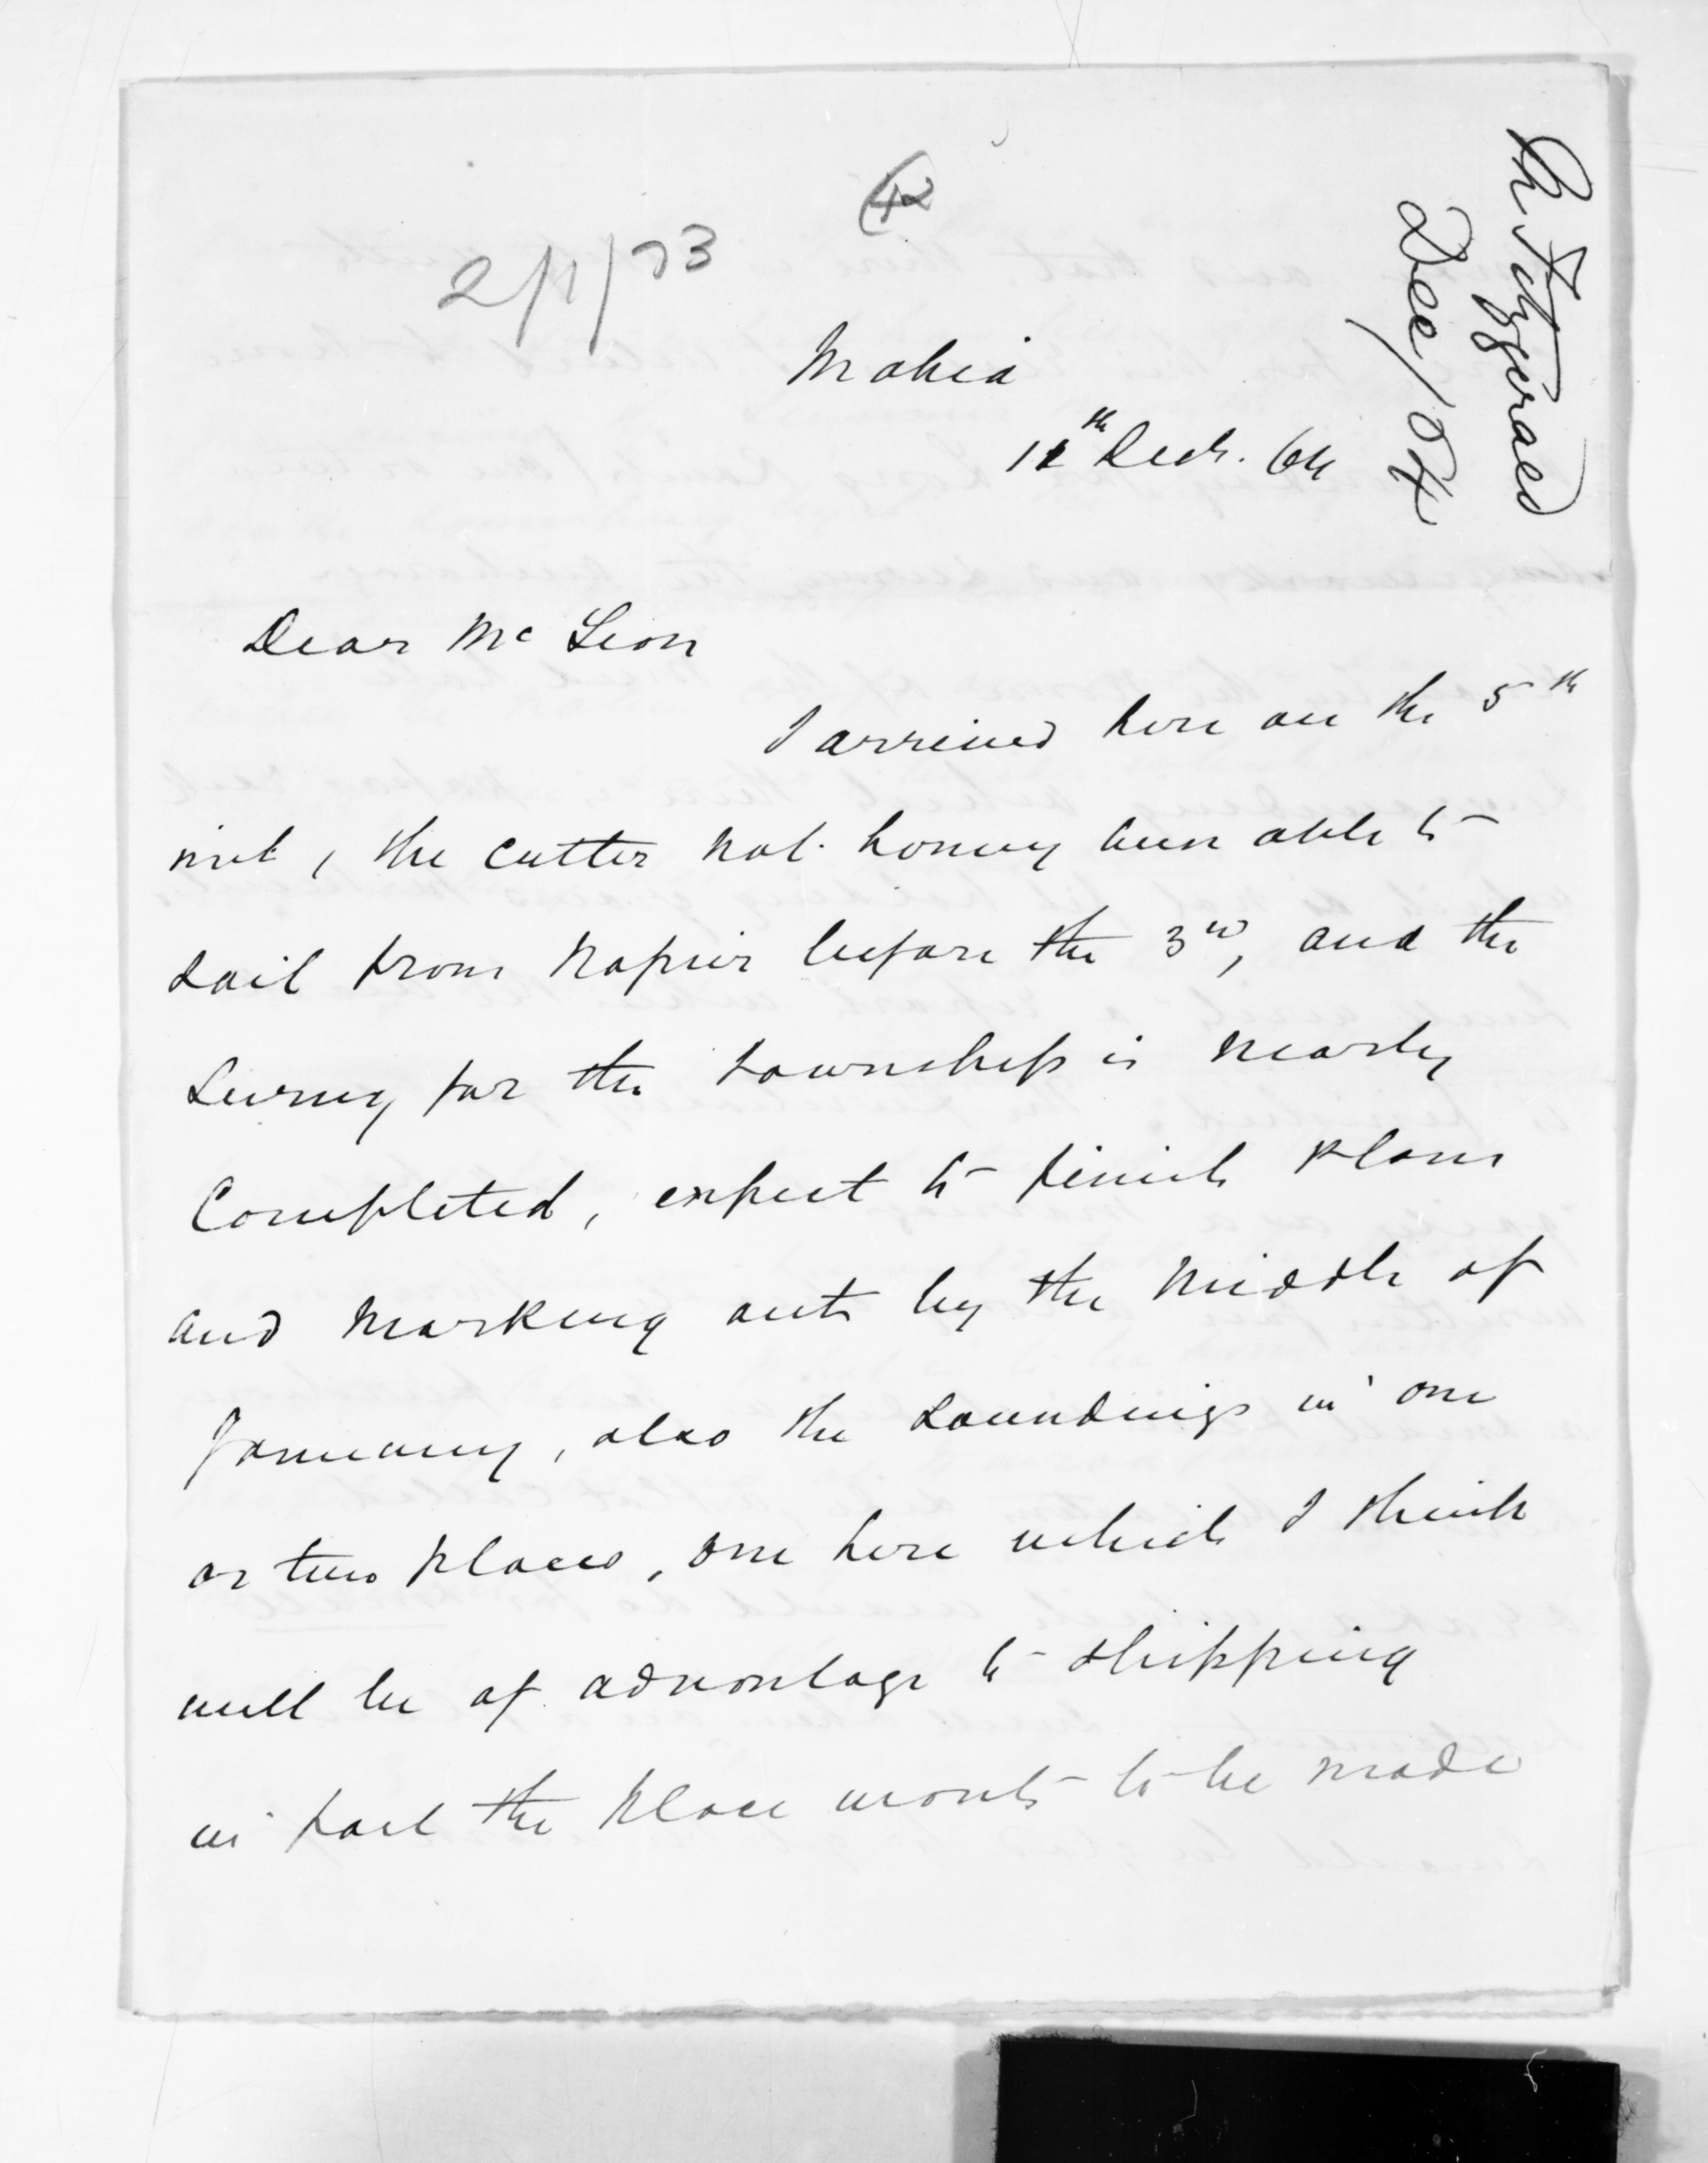 42
2/1/73
R Fitzgerald
Dec/64
Mahia
12th Decr. 64
Dear McLean
I arrived here on the 5th
inst, the cutter not having been able to
sail from Napier before the 3rd, and the
Survey for the township is nearly
Completed, expect to finish plans
and Marking out by the Middle of
January, also the soundings in one
or two places, one here which I think
will be of advantage to shipping
in fact the place wants to be made